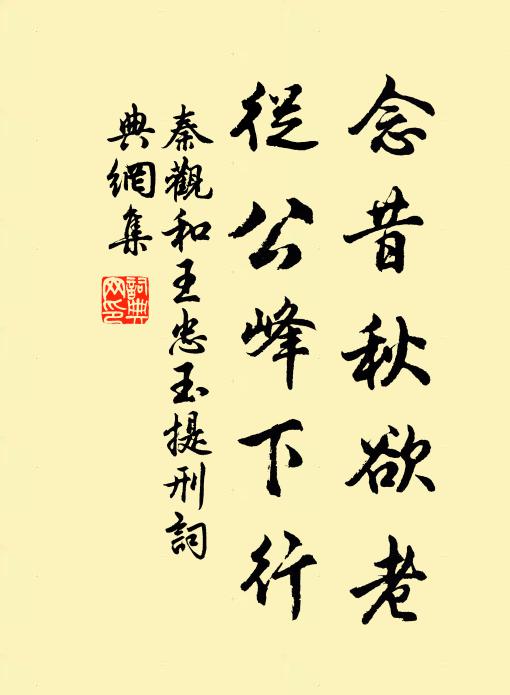 念昔秋欲老
從公峰下行
秦觀和王忠玉提刑詞
典網集
詞典
网印